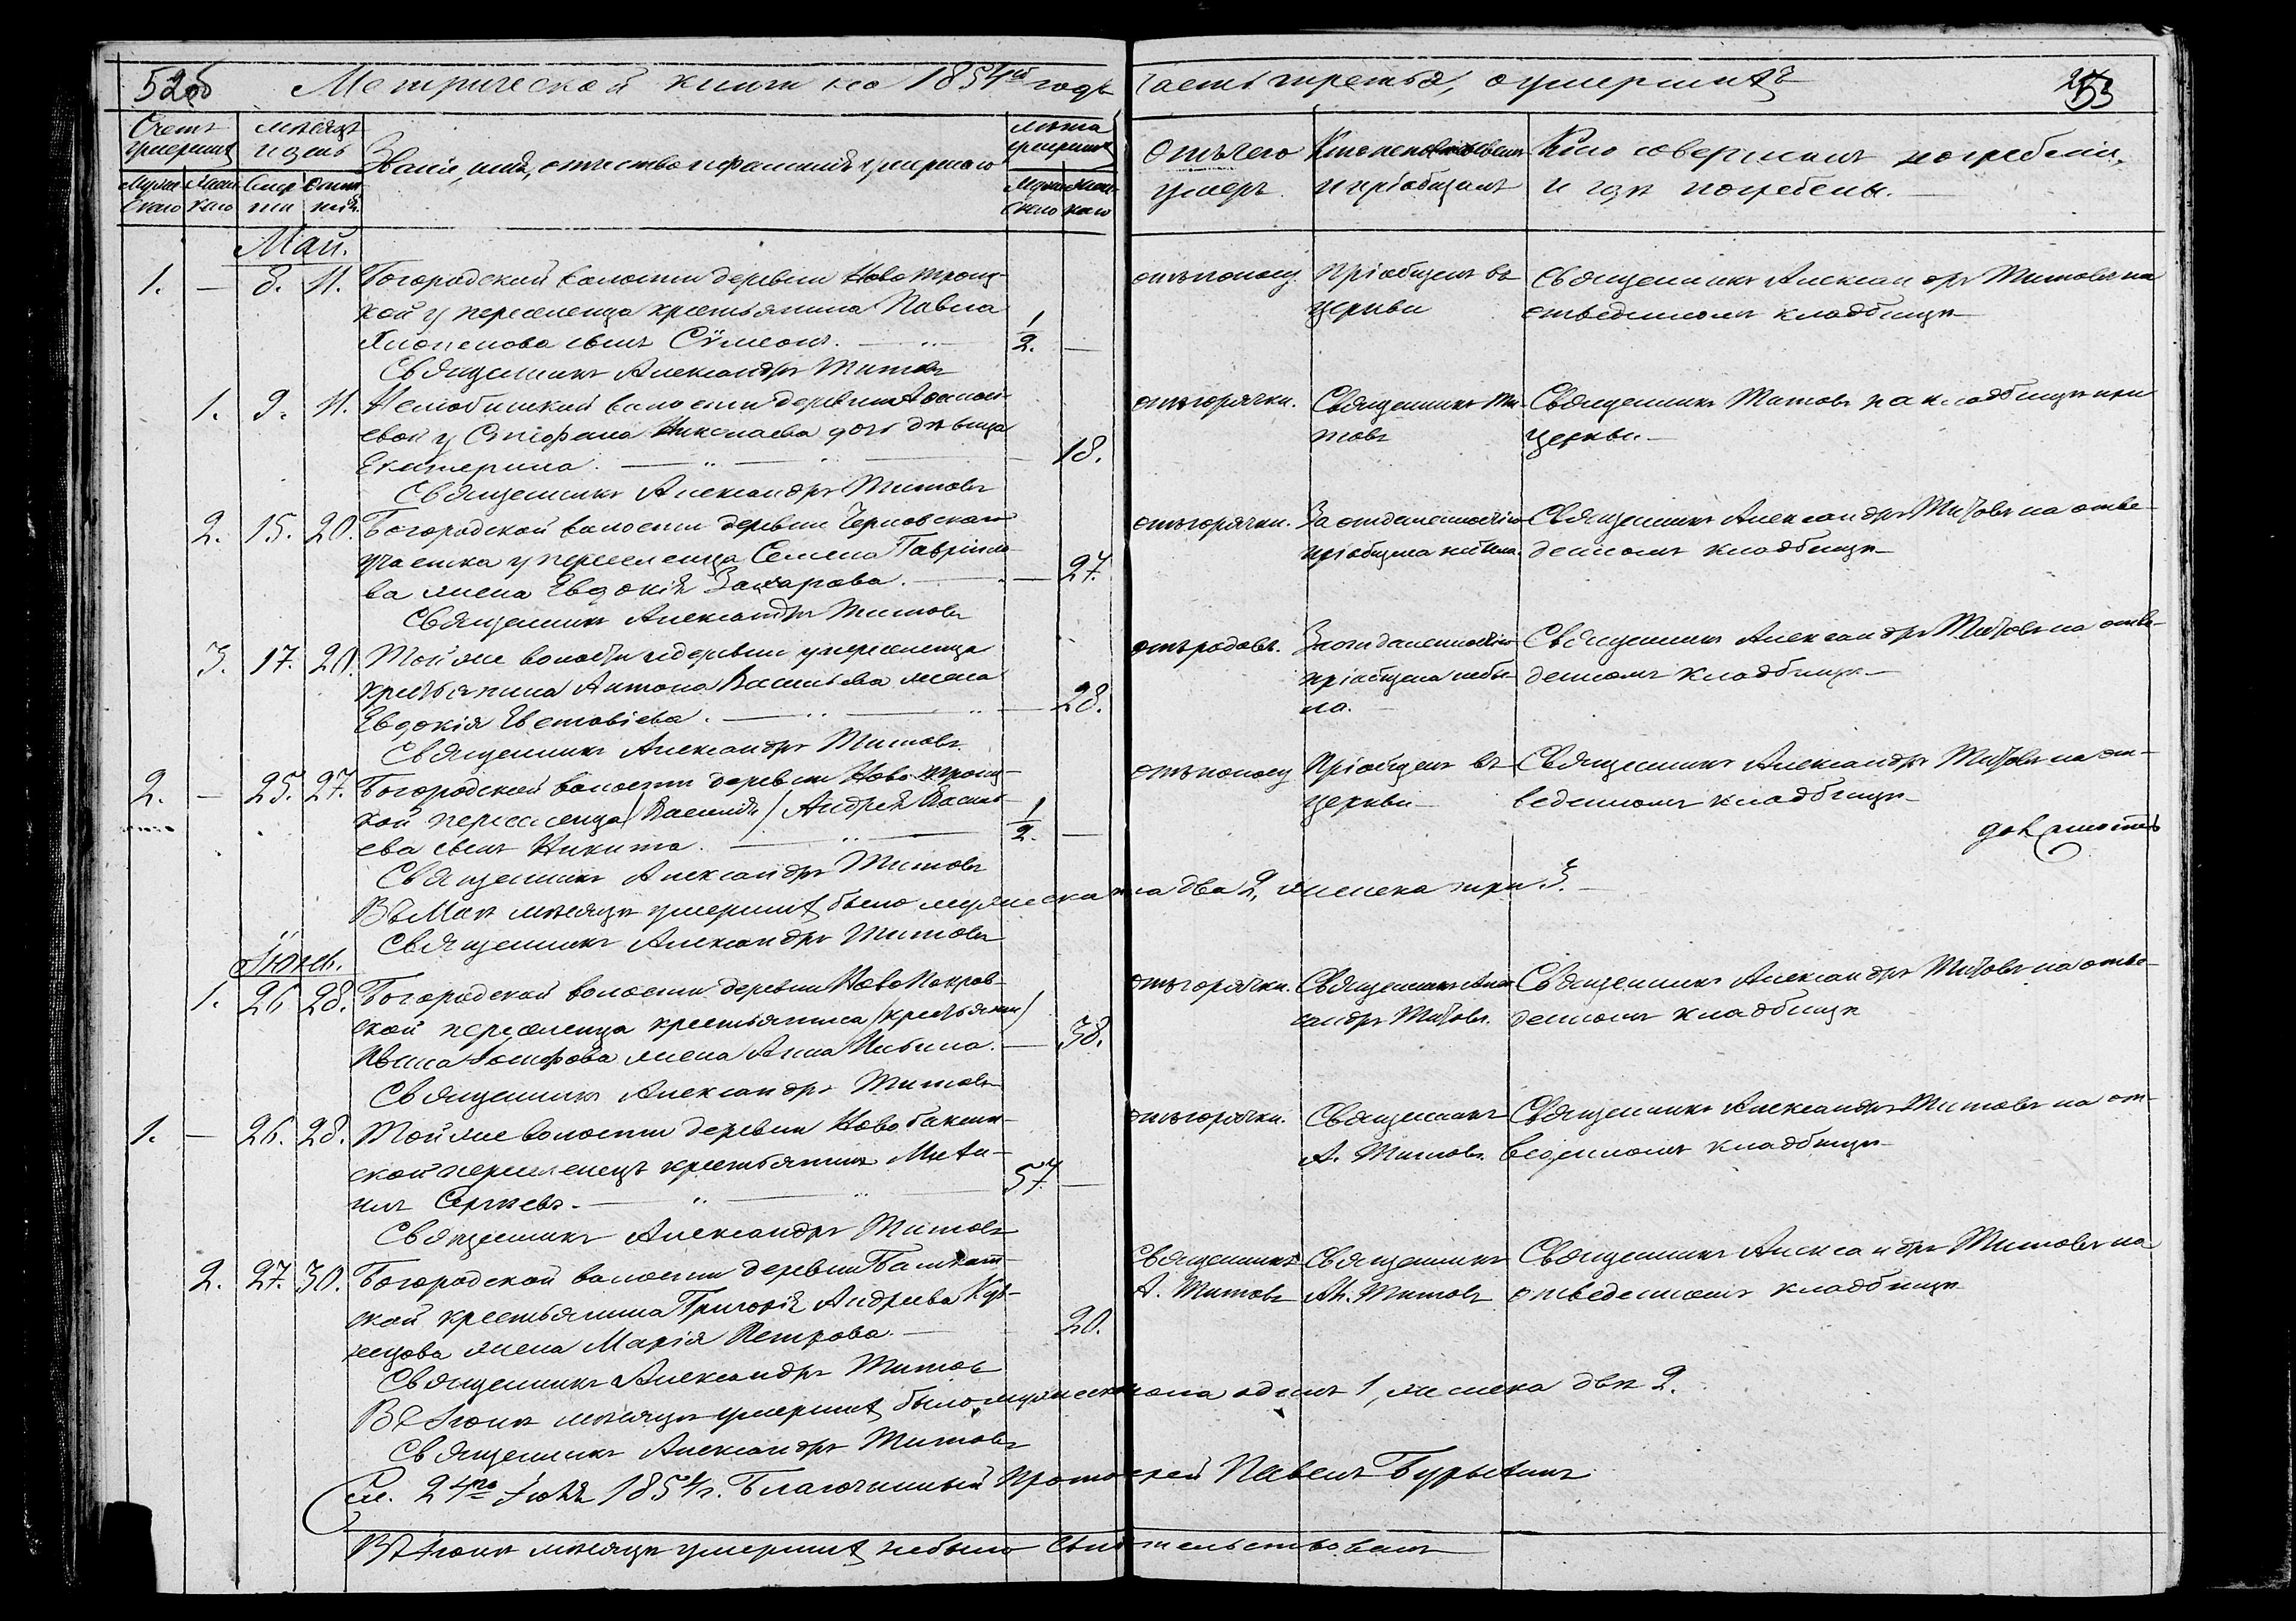 52об Метрической книги на 1854ый годъ часть третья, о умершихъ 53
Счетъ умершихъ
Мужескаго Женскаго
Месяцъ и день
Смерти
Званіе, имя, отчество и фамилія умершаго
Лѣта умершаго
Мужескаго Женскаго
Отъ чего умеръ
Кто исповѣдывалъ и пріобщалъ
Кто совершалъ погребеніе и гдѣ погребены.
Май.
1. — 8. 11. Богородской волости деревни Ново Троиц-
кой у переселенца крестьянина Павла
сынъ Сѵмеонъ. 1/2. —
отъ поносу Пріобщенъ въ церкви
Священникъ Александръ Титовъ на
отведенномъ кладбищѣ
Священникъ Александръ Титовъ
1. 9. 11. волости деревни
у Стефана Николаева дочь дѣвица
Екатерина. — 18.
отъ горячки. Священникъ Ти-
товъ
Священникъ Титовъ на кладбищѣ при
церкви
Священникъ Александръ Титовъ
2. 15. 20. Богородской волости деревни Черновскаго
участка у переселенца Семена Гаврило-
ва жена Евдокія Захарова. — 27.
отъ горячки. За отдаленностію
пріобщена не была.
Священникъ Александръ Титовъ на отве-
денномъ кладбищѣ
Священникъ Александръ Титовъ
3. 17. 20. Той же волости и деревни у переселенца
крестьянина Антона Васильева жена
Евдокія — 28.
отъ родовъ. За отдаленностію
пріобщена небы-
ла.
Священникъ Александръ Титовъ на отве-
денномъ кладбищѣ
Священникъ Александръ Титовъ
2. — 25. 27. Богородской волости деревни Ново Троиц-
кой переселенца /Василія/ Андрея Василь-
ева сынъ Никита. 1/2. —
отъ поносу Пріобщенъ въ
церкви
Священникъ Александръ Титовъ на от-
веденномъ кладбищѣ
Священникъ Александръ Титовъ
Въ Маѣ месяцѣ умершихъ было мужеска пола два 2, женска три 3.
Священникъ Александръ Титовъ
Іюнь.
1. 26 28. Богородской волости деревни Ново Покров-
ской переселенца крестьянина /крестьянин/
Ивана Іосифова жена Анна — 38.
отъ горячки. Священникъ Алек-
сандръ Титовъ.
Священникъ Александръ Титовъ на отве-
денномъ кладбищѣ
Священникъ Александръ Титовъ
1. — 26. 28. Той же волости деревни Ново
ской переселенецъ крестьянинъ Миха-
илъ Сергѣевъ. 57. —
отъ горячки. Священникъ
А. Титовъ.
Священникъ Александръ Титовъ на от-
веденномъ кладбищѣ
Священникъ Александръ Титовъ
2. 27. 30. Богородской волости деревни
ской крестьянина Григорія Андреева Куз-
нецова жена Марія Петрова. 20.
Священникъ
А. Титовъ
Священникъ
Ал. Титовъ
Священникъ Александръ Титовъ на
отведенномъ кладбищѣ
Священникъ Александръ Титовъ
Въ Іюнѣ месяцѣ умершихъ было мужеска пола одинъ 1, женска двѣ 2.
Священникъ Александръ Титовъ
24го Іюля 1854 г. Благочинный Протоіерей Павелъ
Въ месяцѣ умершихъ небыло свидѣтельствовалъ